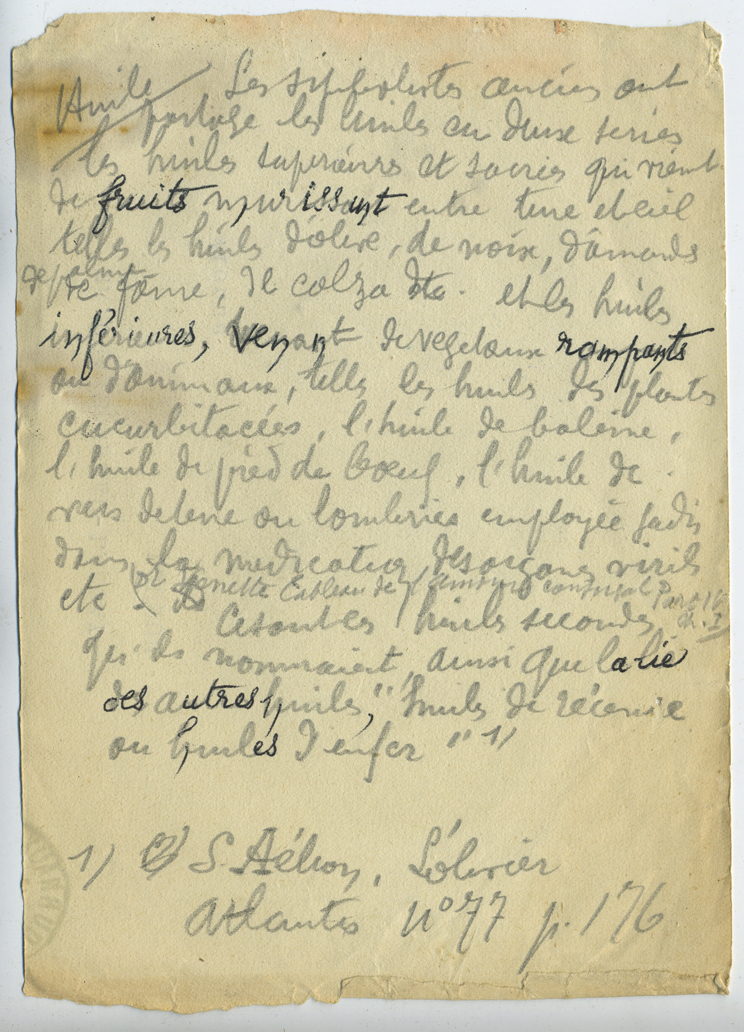 Huile Les symbolistes anciens ont
partagé les huiles en deux series
les huiles superieures et sacrées qui vient
de fruits murissant entre terre et ciel
telles les huiles d'olive, de noix, d'amande
de palme
de faine, de colza etc. et les huiles
inférieures, venant de vegetaux rampants
ou d'animaux, telles les huiles des plantes
cucurbitacées, l'huile de baleine,
l'huile de pied de boeuf, l'huile de
vers de terre ou lombrics employée jadis
dans la medication des organes virils
etc. (Dr Venette Tableau de l'amour conjugal Part IV
ch. I
Ce sont les huiles secondes
qu'ils nommaient, ainsi que la lie
des autres huiles, "huiles de
ou huiles d'enfer" 1)
1) S. Aélron, L'olivier
Atlantis n° 77 p. 176